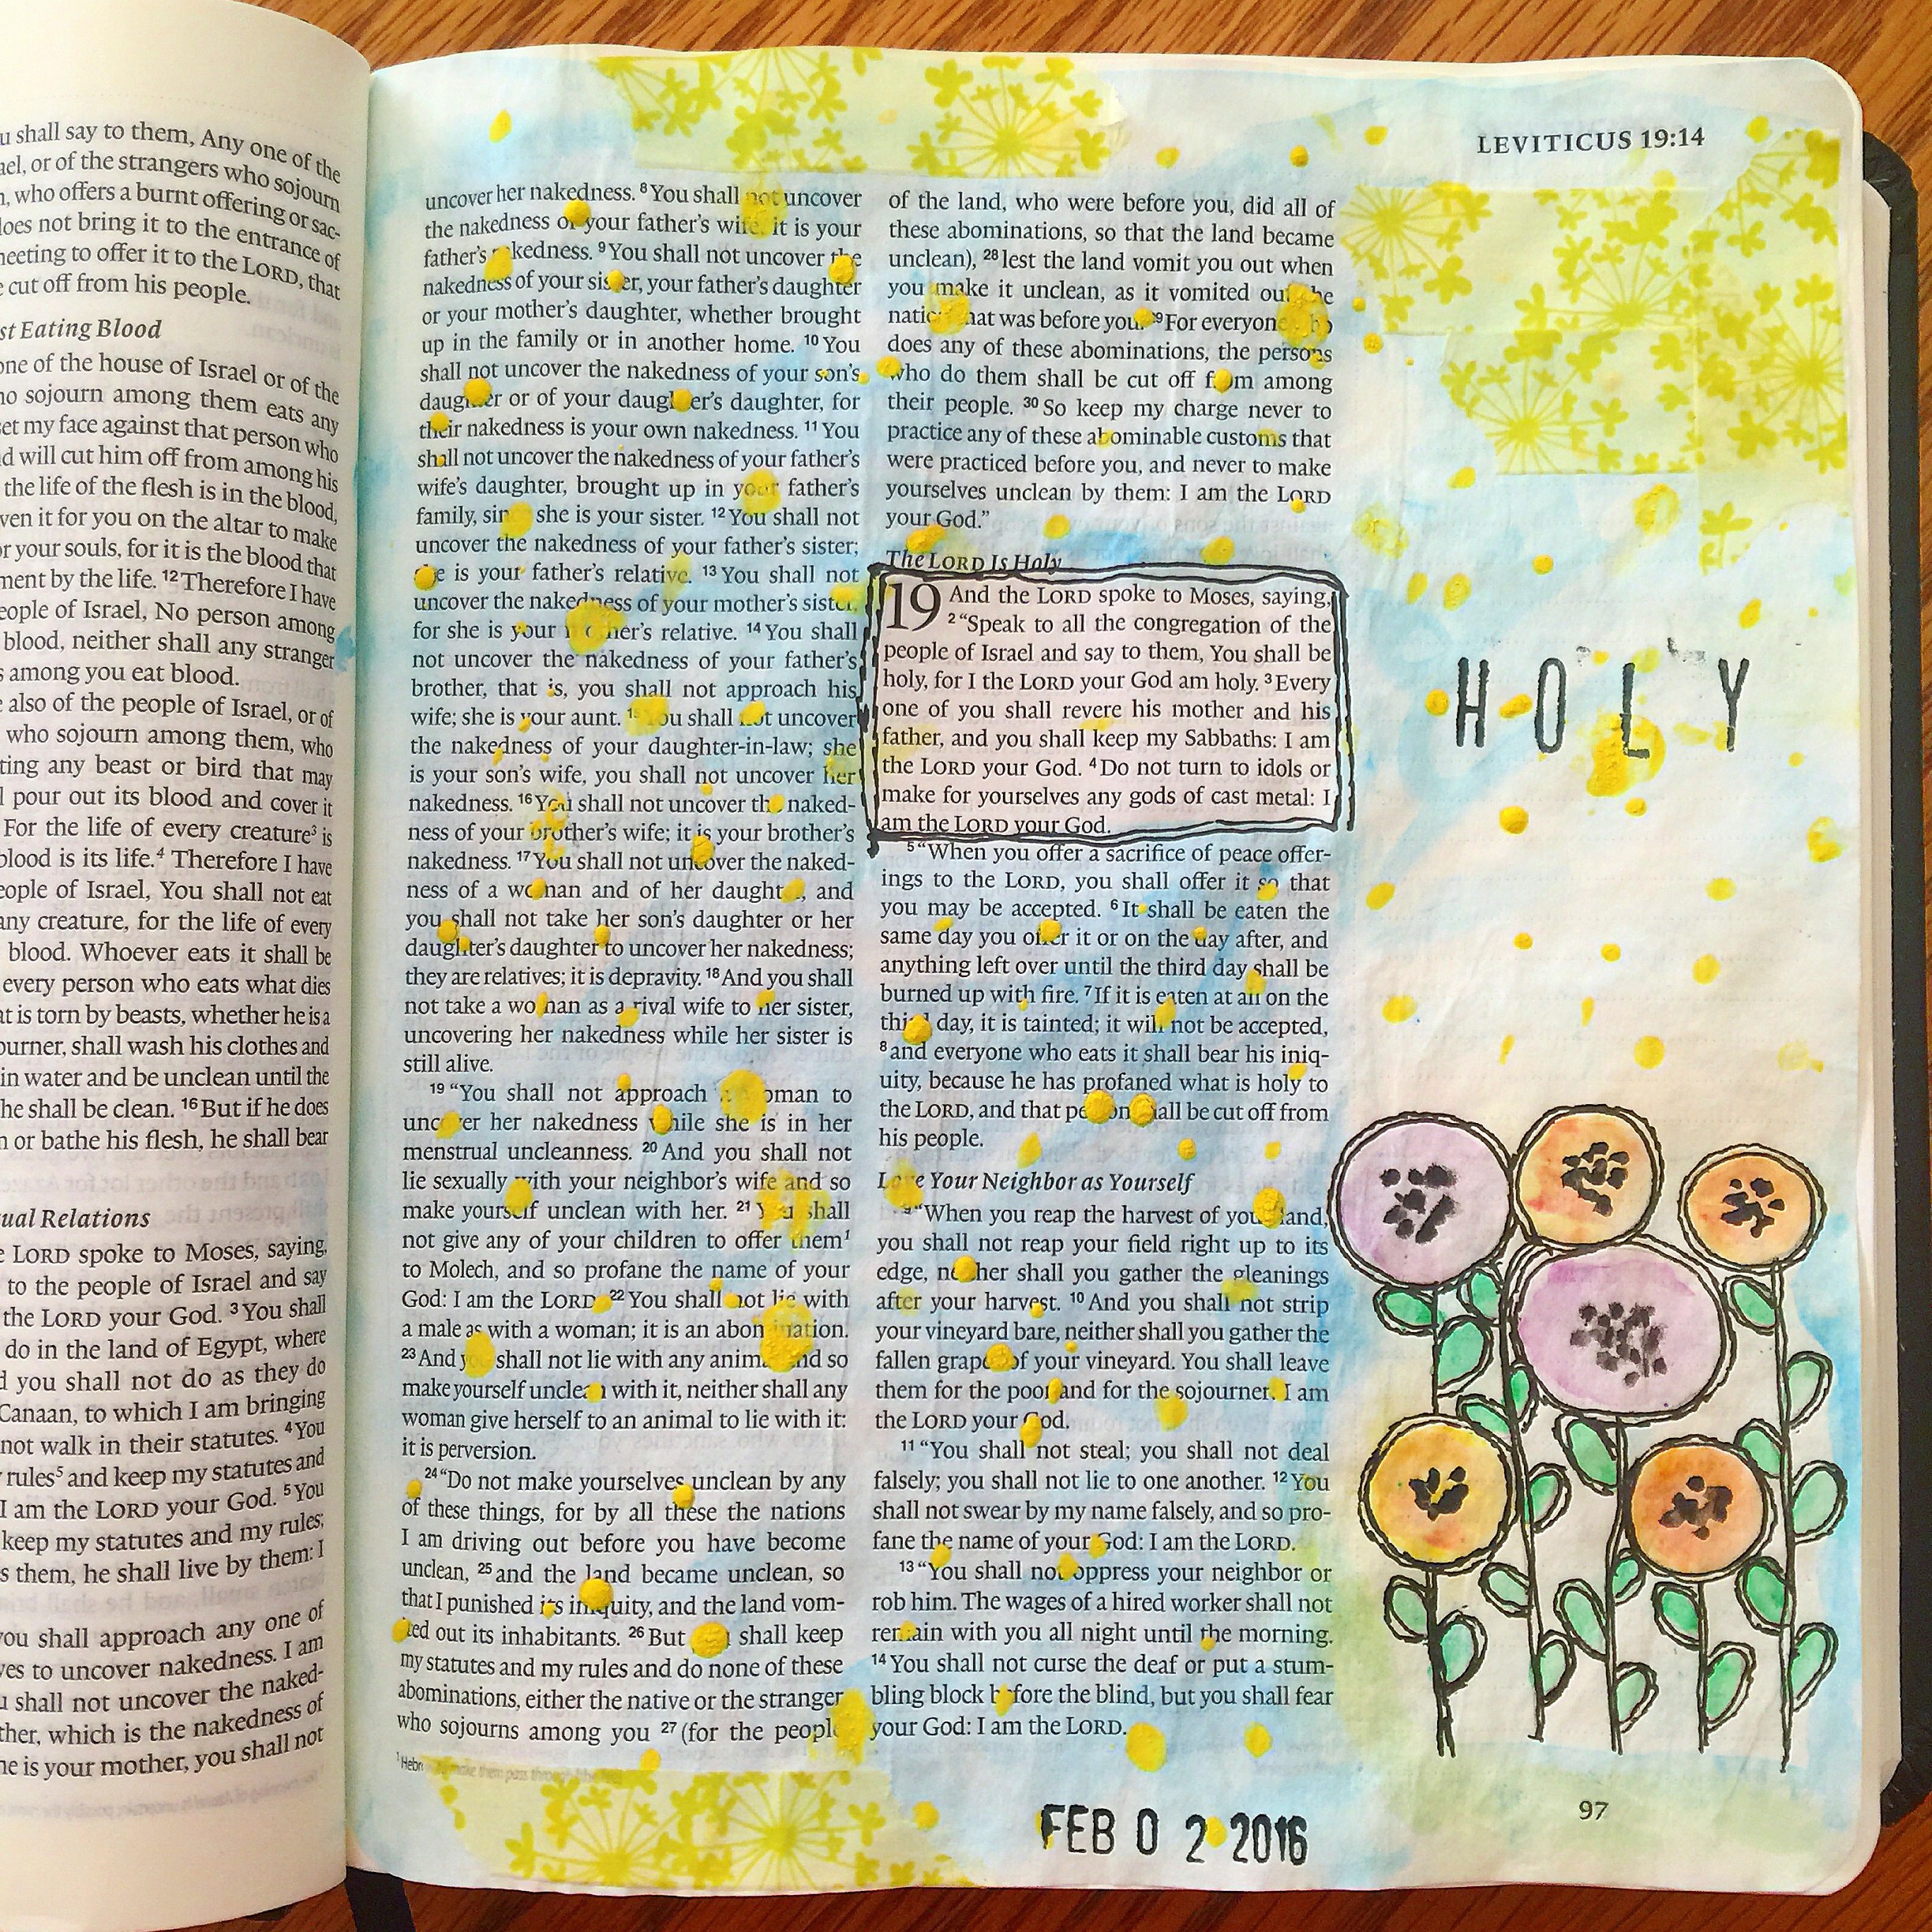 u shall say to them, Any one of the
ael, or of the strangers who sojourn
, who offers a burnt offering or sac-
does not bring it to the entrance of
meeting to offer it to the LORD, that
cut off from his people.
st Eating Blood
one of the house of Israel or of the
no sojourn among them eats any
set my face against that person who
d will cut him off from among his
the life of the flesh is in the blood,
ven it for you on the altar to make
or your souls, for it is the blood that
ment by the life. 12 Therefore I have
eople of Israel, No person among
blood, neither shall any stranger
s among you eat blood.
also of the people of Israel, or of
who sojourn among them, who
ting any beast or bird that may
l pour out its blood and cover it
For the life of every creature3 is
blood is its life.4 Therefore I have
eople of Israel, You shall not eat
any creature, for the life of every
blood. Whoever eats it shall be
every person who eats what dies
at is torn by beasts, whether he is a
ourner, shall wash his clothes and
in water and be unclean until the
he shall be clean. 16 But if he does
n or bathe his flesh, he shall bear
ual Relations
LORD spoke to Moses, saying,
to the people of Israel and say
the LORD your God. 3 You shall
do in the land of Egypt, where
d you shall not do as they do
Canaan, to which I am bringing
not walk in their statutes. 4 You
rules5 and keep my statutes and
I am the LORD your God. 5 You
keep my statutes and my rules;
s them, he shall live by them: I
you shall approach any one of
ves to uncover nakedness. I am
u shall not uncover the naked-
ther, which is the nakedness of
he is your mother, you shall not
LEVITICUS 19:14
uncover her nakedness. 8 You shall not uncover
the nakedness of your father's wife; it is your
father's nakedness. 9 You shall not uncover the
nakedness of your sister, your father's daughter
or your mother's daughter, whether brought
up in the family or in another home. 10 You
shall not uncover the nakedness of your son's
daughter or of your daughter's daughter, for
their nakedness is your own nakedness. 11 You
shall not uncover the nakedness of your father's
wife's daughter, brought up in your father's
family, since she is your sister. 12 You shall not
uncover the nakedness of your father's sister;
she is your father's relative. 13 You shall not
uncover the nakedness of your mother's sister,
for she is your mother's relative. 14 You shall
not uncover the nakedness of your father's
brother, that is, you shall not approach his
wife; she is your aunt. 15 You shall not uncover
the nakedness of your daughter-in-law; she
is your son's wife, you shall not uncover her
nakedness. 16 You shall not uncover the naked-
ness of your brother's wife; it is your brother's
nakedness. 17 You shall not uncover the naked-
ness of a woman and of her daughter, and
you shall not take her son's daughter or her
daughter's daughter to uncover her nakedness;
they are relatives; it is depravity. 18 And you shall
not take a woman as a rival wife to her sister,
uncovering her nakedness while her sister is
still alive.
19 "You shall not approach a woman to
uncover her nakedness while she is in her
menstrual uncleanness. 20 And you shall not
lie sexually with your neighbor's wife and so
make yourself unclean with her. 21 You shall
not give any of your children to offer them1
to Molech, and so profane the name of your
God: I am the LORD. 22 You shall not lie with
a male as with a woman; it is an abomination.
23 And you shall not lie with any animal and so
make yourself unclean with it, neither shall any
woman give herself to an animal to lie with it:
it is perversion.
24 "Do not make yourselves unclean by any
of these things, for by all these the nations
I am driving out before you have become
unclean, 25 and the land became unclean, so
that I punished its iniquity, and the land vom-
ited out its inhabitants. 26 But you shall keep
my statutes and my rules and do none of these
abominations, either the native or the stranger
who sojourns among you 27 (for the people
1 Hebrew
of the land, who were before you, did all of
these abominations, so that the land became
unclean), 28 lest the land vomit you out when
you make it unclean, as it vomited out the
nation that was before you. 29 For everyone who
does any of these abominations, the persons
who do them shall be cut off from among
their people. 30 So keep my charge never to
practice any of these abominable customs that
were practiced before you, and never to make
yourselves unclean by them: I am the LORD
your God."
The LORD Is Holy
19 And the LORD spoke to Moses, saying,
2 "Speak to all the congregation of the
people of Israel and say to them, You shall be
holy, for I the LORD your God am holy. 3 Every
one of you shall revere his mother and his
father, and you shall keep my Sabbaths: I am
the LORD your God. 4 Do not turn to idols or
make for yourselves any gods of cast metal: I
am the LORD your God.
5 "When you offer a sacrifice of peace offer-
ings to the LORD, you shall offer it so that
you may be accepted. 6 It shall be eaten the
same day you offer it or on the day after, and
anything left over until the third day shall be
burned up with fire. 7 If it is eaten at all on the
third day, it is tainted; it will not be accepted,
8 and everyone who eats it shall bear his iniq-
uity, because he has profaned what is holy to
the LORD, and that person shall be cut off from
his people.
Love Your Neighbor as Yourself
9 "When you reap the harvest of your land,
you shall not reap your field right up to its
edge, neither shall you gather the gleanings
after your harvest. 10 And you shall not strip
your vineyard bare, neither shall you gather the
fallen grapes of your vineyard. You shall leave
them for the poor and for the sojourner: I am
the LORD your God.
11 "You shall not steal; you shall not deal
falsely; you shall not lie to one another. 12 You
shall not swear by my name falsely, and so pro-
fane the name of your God: I am the LORD.
13 "You shall not oppress your neighbor or
rob him. The wages of a hired worker shall not
remain with you all night until the morning.
14 You shall not curse the deaf or put a stum-
bling block before the blind, but you shall fear
your God: I am the LORD.
HOLY
FEB 02 2016
97